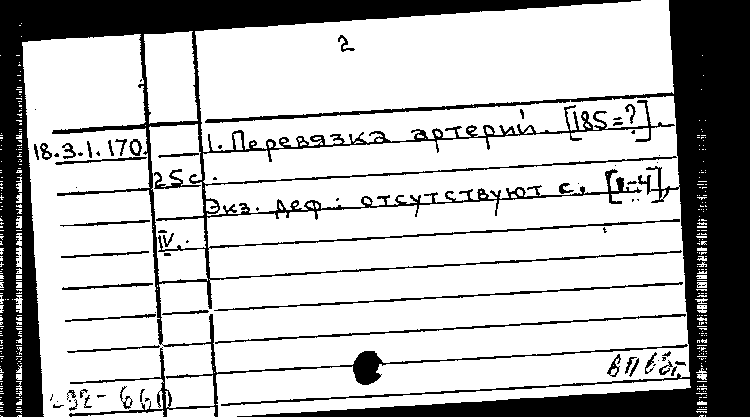 2
18.3.1.170. 1. Перевязка артерий. [185=?].
25с.
Экз. деф.: отсутствуют с. [1-4],
IV.
292-660
ВП 63г.